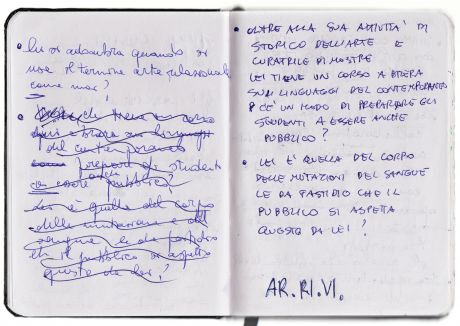 • Lui si
quando si
usa il termine arte relazionale
come mai?
•
del contemporaneo
studenti
a essere pubblico?
Lei è quella del corpo
delle mutazioni e del
sangue le da fastidio
che il pubblico si aspetti
questo da lei?
• OLTRE ALLA SUA ATTIVITA' DI
STORICO DELL'ARTE E
CURATRICE DI MOSTRE
LEI TIENE UN CORSO A BRERA
SUI LINGUAGGI DEL CONTEMPORANEO
C'È UN MODO DI PREPARARE GLI
STUDENTI A ESSERE ANCHE
PUBBLICO?
• LEI E' QUELLA DEL CORPO
DELLE MUTAZIONI DEL SANGUE
LE DA FASTIDIO CHE IL
PUBBLICO SI ASPETTA
QUESTO DA LEI?
AR.RI.VI.